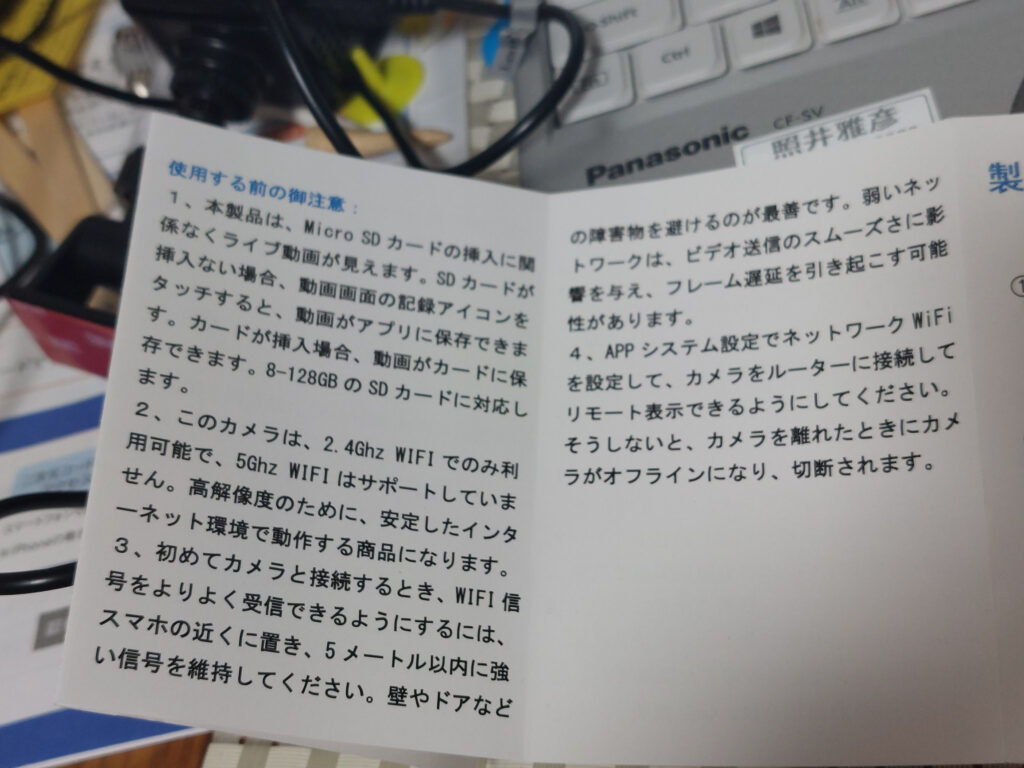 Shift
Ctrl
Alt
Panasonic
CF-SV
照井雅彦
使用する前の御注意：
1、本製品は、Micro SD カードの挿入に関
係なくライブ動画が見えます。SD カードが
挿入ない場合、動画画面の記録アイコンを
タッチすると、動画がアプリに保存できま
す。カードが挿入場合、動画がカードに保
存できます。8-128GB の SD カードに対応し
ます。
2、このカメラは、2.4Ghz WIFI でのみ利
用可能で、5Ghz WIFI はサポートしていま
せん。高解像度のために、安定したインタ
ーネット環境で動作する商品になります。
3、初めてカメラと接続するとき、WIFI 信
号をよりよく受信できるようにするには、
スマホの近くに置き、5 メートル以内に強
い信号を維持してください。壁やドアなど
の障害物を避けるのが最善です。弱いネッ
トワークは、ビデオ送信のスムーズさに影
響を与え、フレーム遅延を引き起こす可能
性があります。
4、APP システム設定でネットワーク WiFi
を設定して、カメラをルーターに接続して
リモート表示できるようにしてください。
そうしないと、カメラを離れたときにカメ
ラがオフラインになり、切断されます。
製
①